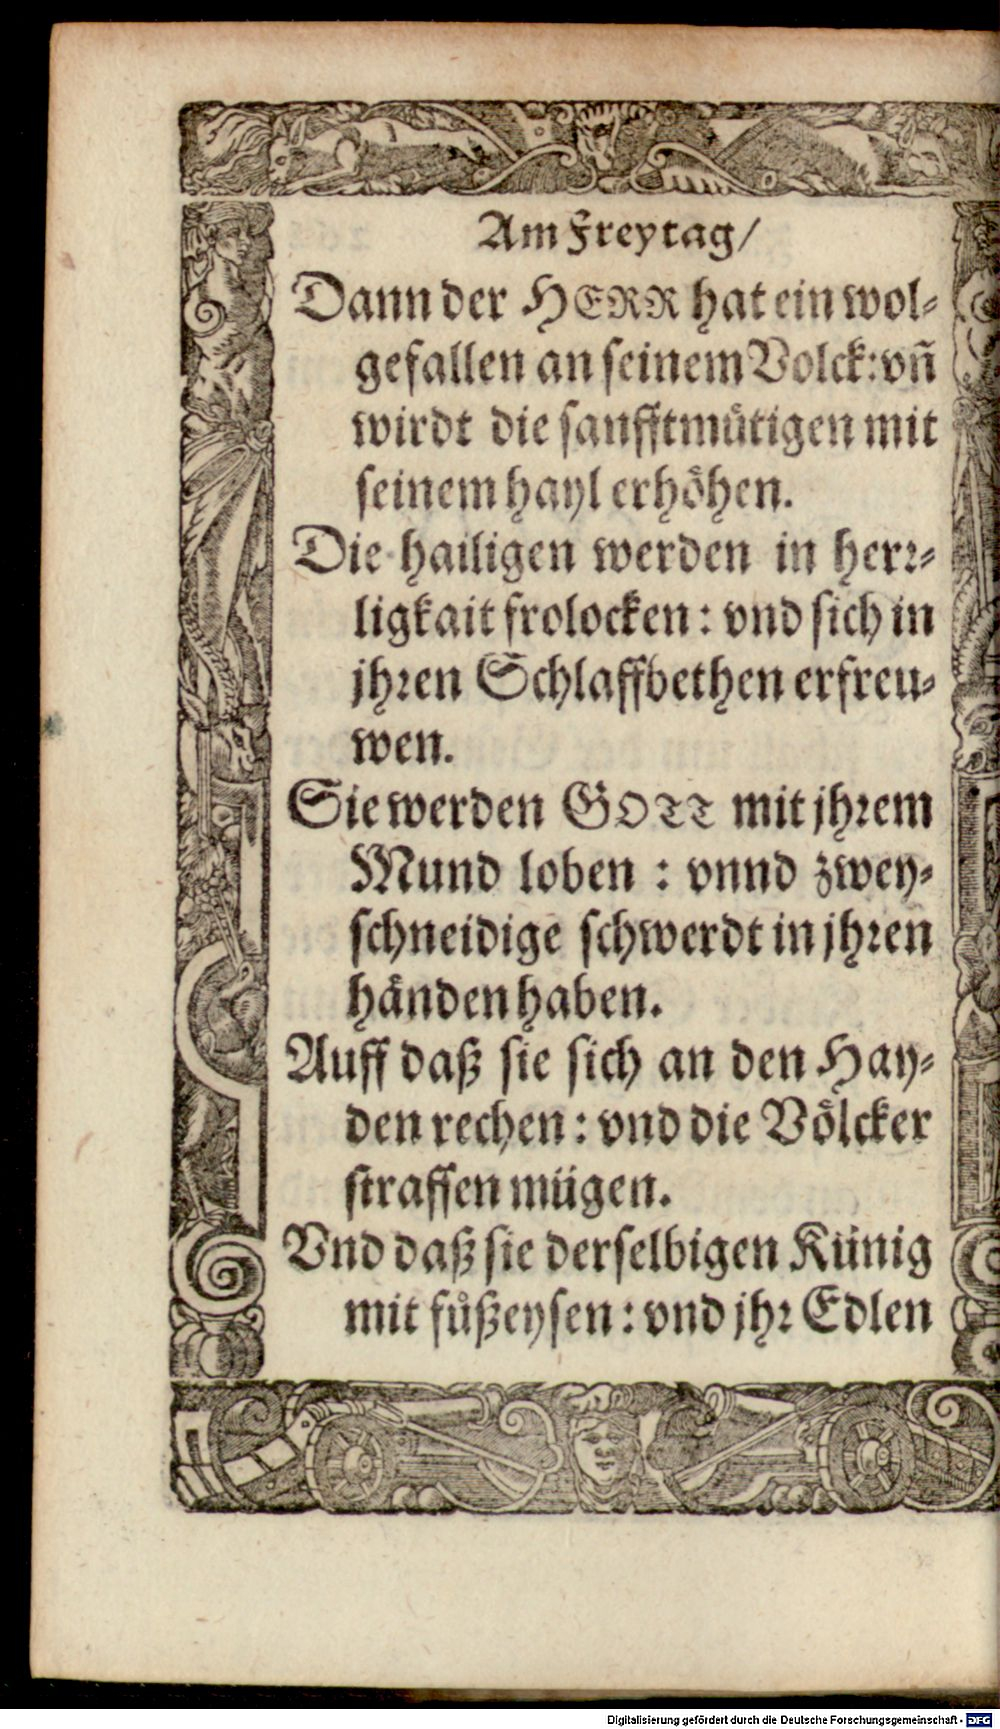 Am Freytag/
Dann der HERR hat ein wol⸗
gefallen an seinem Volck: vñ
wirdt die sanfftmuͤtigen mit
seinem hayl erhoͤhen.
Die hailigen werden in herr⸗
ligkait frolocken: vnd sich in
jhren Schlaffbethen erfreu⸗
wen.
Sie werden GOTT mit jhrem
Mund loben : vnnd zwey⸗
schneidige schwerdt in jhren
haͤnden haben.
Auff daß sie sich an den Hay⸗
den rechen: vnd die Voͤlcker
straffen muͤgen.
Vnd daß sie derselbigen Kuͤnig
mit fuͦßeysen: vnd jhr Edlen
Digitalisierung gefördert durch die Deutsche Forschungsgemeinschaft - DFG